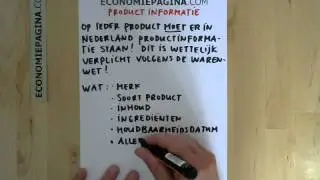 ECONOMIEPAGINA.COM
PRODUCT INFORMATIE
OP IEDER PRODUCT MOET ER IN
NEDERLAND PRODUCTINFORMA-
TIE STAAN! DIT IS WETTELIJK
VERPLICHT VOLGENS DE WAREN-
WET!
WAT: • MERK
• SOORT PRODUCT
• INHOUD
• INGREDIENTEN
• HOUDBAARHEIDSDATUM
• ALLE
ECONOMIEPAGINA.COM